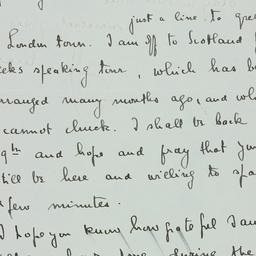 just a line to gree
London town. I am off to Scotland
eeks speaking tour, which has be
rranged many months ago, and wh
cannot chuck. I shall be back
9th and hope and pray that you
till be here and willing to spa
few minutes.
I hope you know how grateful I am
during the